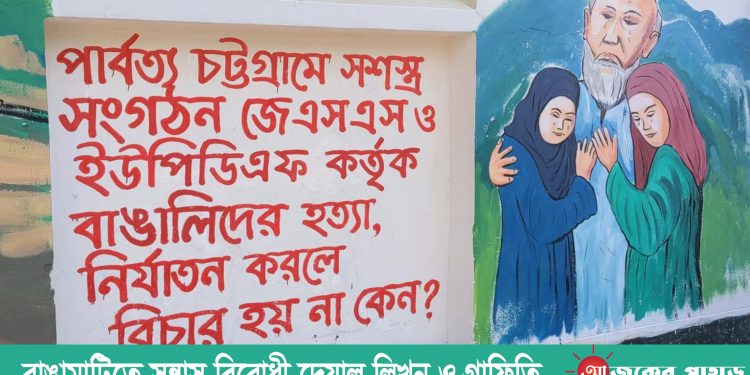 পার্বত্য চট্টগ্রামে সশস্ত্র
সংগঠন জেএসএস ও
ইউপিডিএফ কর্তৃক
বাঙালিদের হত্যা,
নির্যাতন করলে
বিচার হয় না কেন?
রাঙামাটিতে সন্ত্রাস বিরোধী দেয়াল লিখন ও গ্রাফিতি
আজকের পাহাড়